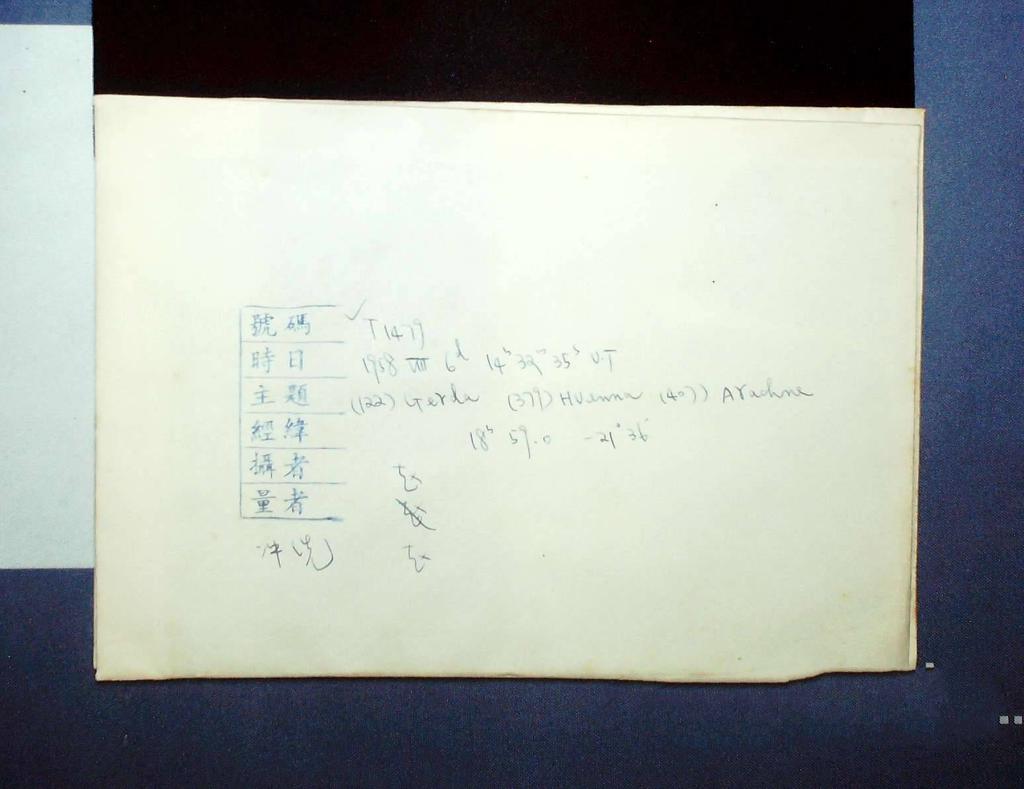 號碼 T1479
時日 1958 VIII 6d 14h 32m 35s U.T
主題 (122) Gerda (379) Huenna (407) Arachne
經緯 18h 59.0 -21° 36'
攝者 赵
量者
冲洗 赵